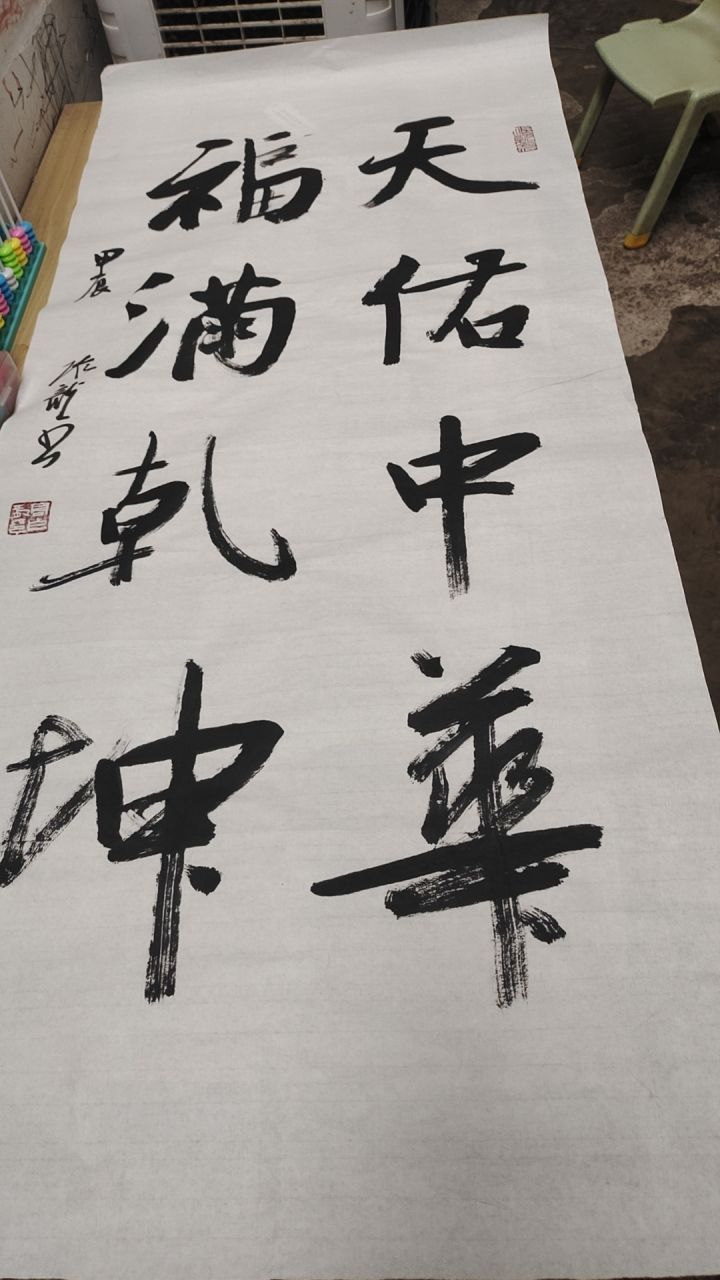 天佑中华
福满乾坤
甲辰
书